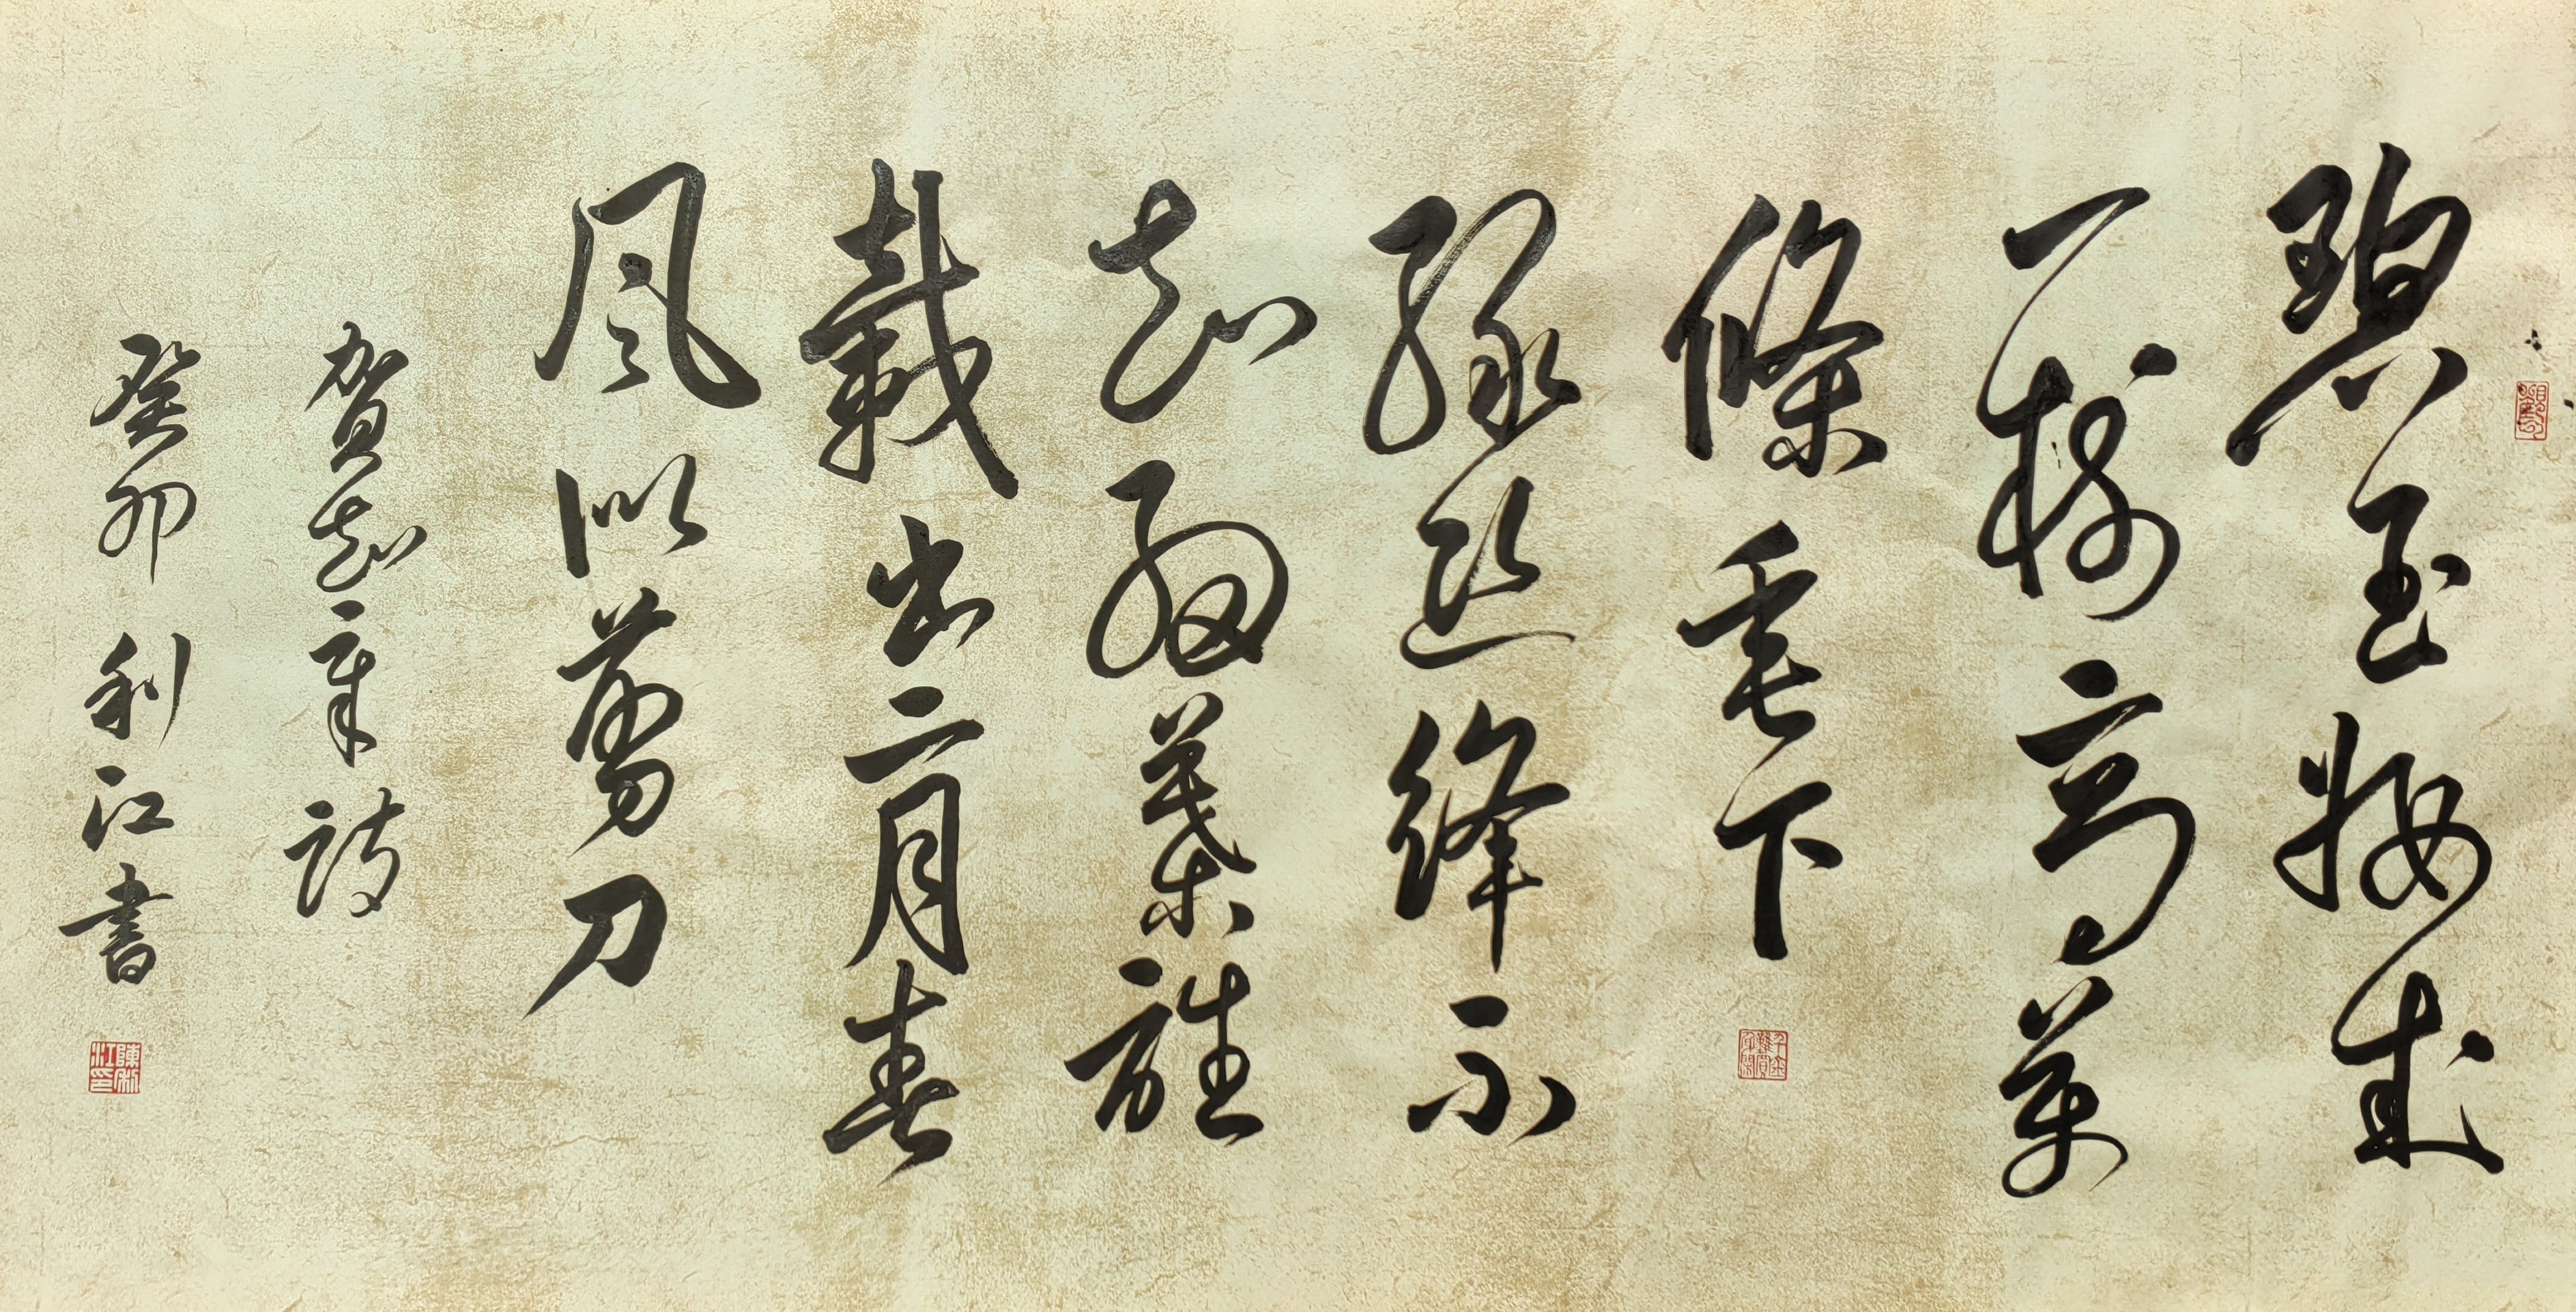 碧玉妝成
一樹高萬
條垂下
綠丝絳不
知細葉誰
裁出二月春
風似剪刀
賀知章詩
癸卯 利江書
陳利江印